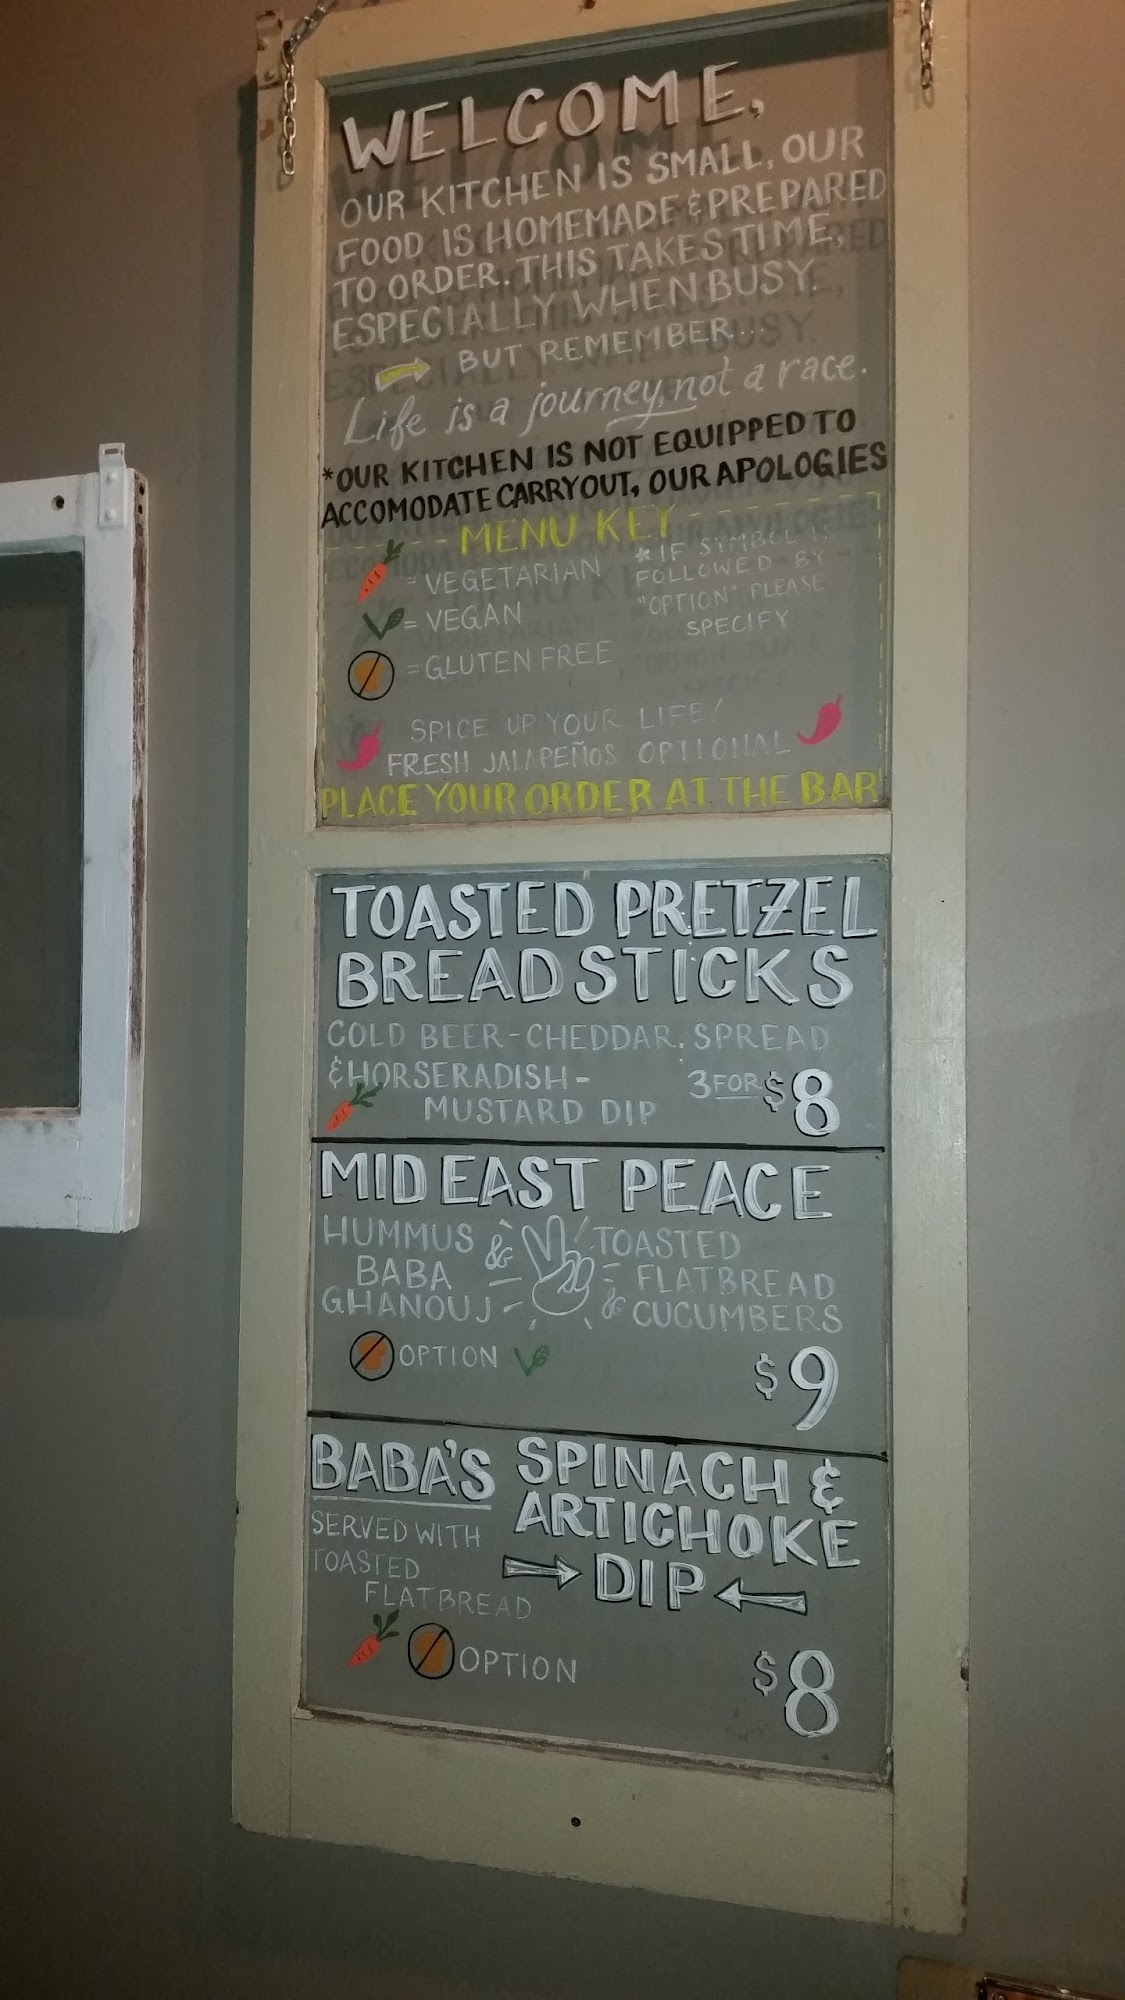 WELCOME,
OUR KITCHEN IS SMALL, OUR
FOOD IS HOMEMADE & PREPARED
TO ORDER. THIS TAKES TIME,
ESPECIALLY WHEN BUSY.
BUT REMEMBER...
Life is a journey, not a race.
*OUR KITCHEN IS NOT EQUIPPED TO
ACCOMODATE CARRYOUT, OUR APOLOGIES
MENU KEY
= VEGETARIAN
= VEGAN
= GLUTEN FREE
* IF SYMBOL IS
FOLLOWED BY
"OPTION" PLEASE
SPECIFY
SPICE UP YOUR LIFE!
FRESH JALAPEÑOS OPTIONAL
PLACE YOUR ORDER AT THE BAR
TOASTED PRETZEL
BREADSTICKS
COLD BEER-CHEDDAR SPREAD
& HORSERADISH-
MUSTARD DIP
3 FOR $8
MID EAST PEACE
HUMMUS &
BABA
GHANOUJ
TOASTED
FLATBREAD
& CUCUMBERS
OPTION
$9
BABA'S SPINACH &
ARTICHOKE
DIP
SERVED WITH
TOASTED
FLATBREAD
OPTION
$8